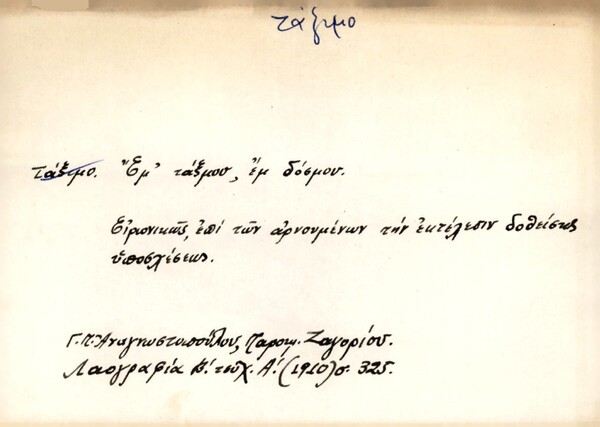 τάξιμο
τάξιμο. Ἔμ' τάξμου, ἔμ δόσμου.
Εἰρωνικῶς, ἐπί τῶν ἀρνουμένων τήν ἐκτέλεσιν δοθείσης
ὑποσχέσεως.
Γ. Π. Ἀναγνωστοπούλου, Παροιμ. Ζαγορίου.
Λαογραφία Β! τεῦχ. Α! (1910) σ. 325.